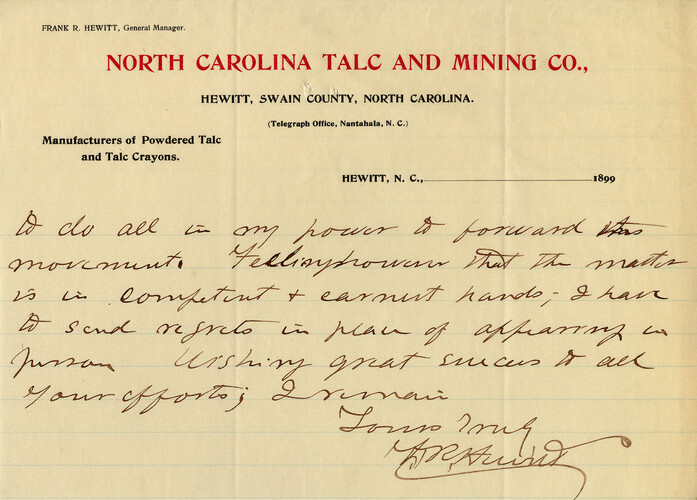 FRANK R. HEWITT, General Manager.
NORTH CAROLINA TALC AND MINING CO.,
HEWITT, SWAIN COUNTY, NORTH CAROLINA.
(Telegraph Office, Nantahala, N. C.)
Manufacturers of Powdered Talc
and Talc Crayons.
HEWITT, N. C., 1899
to do all in my power to forward this
movement. Feeling however that the matter
is in competent & earnest hands; I have
to send regrets in place of appearing in
person Wishing great success to all
your efforts; I remain
Yours Truly
F. R. Hewitt